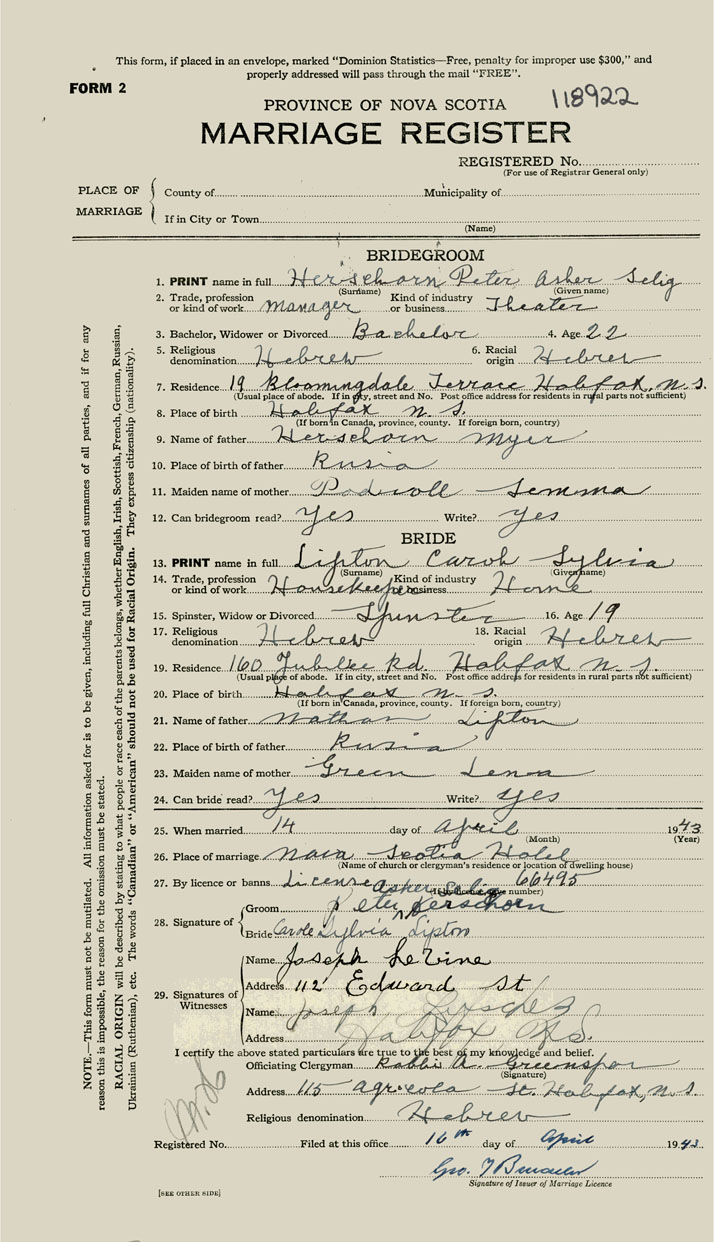 This form, if placed in an envelope, marked "Dominion Statistics—Free, penalty for improper use $300," and
properly addressed will pass through the mail "FREE".
FORM 2
PROVINCE OF NOVA SCOTIA 118922
MARRIAGE REGISTER
REGISTERED No.
(For use of Registrar General only)
PLACE OF MARRIAGE
County of Municipality of
If in City or Town
(Name)
BRIDEGROOM
1. PRINT name in full Herschorn Peter Asher Selig
(Surname) (Given name)
2. Trade, profession or kind of work manager Kind of industry or business Theater
3. Bachelor, Widower or Divorced Bachelor 4. Age 22
5. Religious denomination Hebrew 6. Racial origin Hebrew
7. Residence 19 Bloomingdale Terrace Halifax, n.s.
(Usual place of abode. If in city, street and No. Post office address for residents in rural parts not sufficient)
8. Place of birth Halifax n.s.
(If born in Canada, province, county. If foreign born, country)
9. Name of father Herschorn Myer
10. Place of birth of father Rusia
11. Maiden name of mother Semma
12. Can bridegroom read? Yes Write? Yes
BRIDE
13. PRINT name in full Lipton Carol Sylvia
(Surname) (Given name)
14. Trade, profession or kind of work Housekeeper Kind of industry or business Home
15. Spinster, Widow or Divorced Spinster 16. Age 19
17. Religious denomination Hebrew 18. Racial origin Hebrew
19. Residence 160 Jubilee Rd. Halifax n.s.
(Usual place of abode. If in city, street and No. Post office address for residents in rural parts not sufficient)
20. Place of birth Halifax n.s.
(If born in Canada, province, county. If foreign born, country)
21. Name of father Nathan Lipton
22. Place of birth of father Rusia
23. Maiden name of mother Green Lena
24. Can bride read? Yes Write? Yes
25. When married 14 day of April 1943
(Month) (Year)
26. Place of marriage Nova Scotia Hotel
(Name of church or clergyman's residence or location of dwelling house)
27. By licence or banns License 66495
Asher Selig
28. Signature of Groom Peter Herschorn
Bride Carole Sylvia Lipton
29. Signatures of Witnesses
Name Joseph LeVine
Address 112 Edward St
Name Joseph
Address Halifax N.S.
I certify the above stated particulars are true to the best of my knowledge and belief.
Officiating Clergyman Rabbi A. Greenspan
(Signature)
Address 115 Agricola St. Halifax, n.s.
Religious denomination Hebrew
Registered No. Filed at this office 16th day of April 1943
Geo.
Signature of Issuer of Marriage Licence
[SEE OTHER SIDE]
NOTE.—This form must not be mutilated. All information asked for is to be given, including full Christian and surnames of all parties, and if for any
reason this is impossible, the reason for the omission must be stated.
RACIAL ORIGIN will be described by stating to what people or race each of the parents belongs, whether English, Irish, Scottish, French, German, Russian,
Ukrainian (Ruthenian), etc. The words "Canadian" or "American" should not be used for Racial Origin. They express citizenship (nationality).